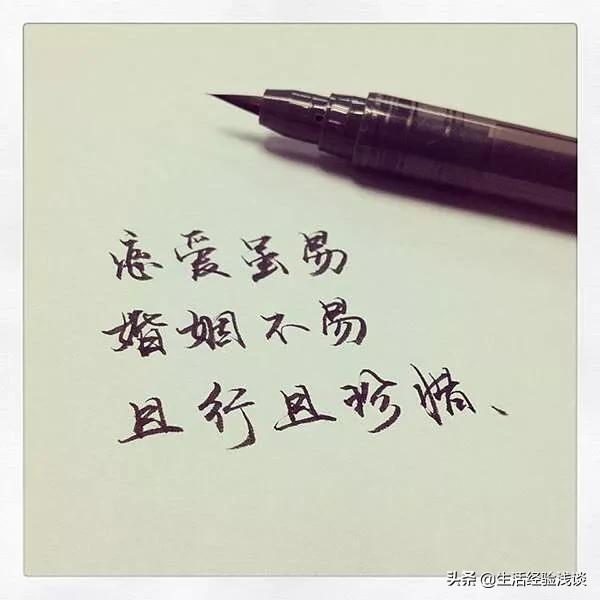 恋爱虽易
婚姻不易
且行且珍惜、
头条 @生活经验浅谈